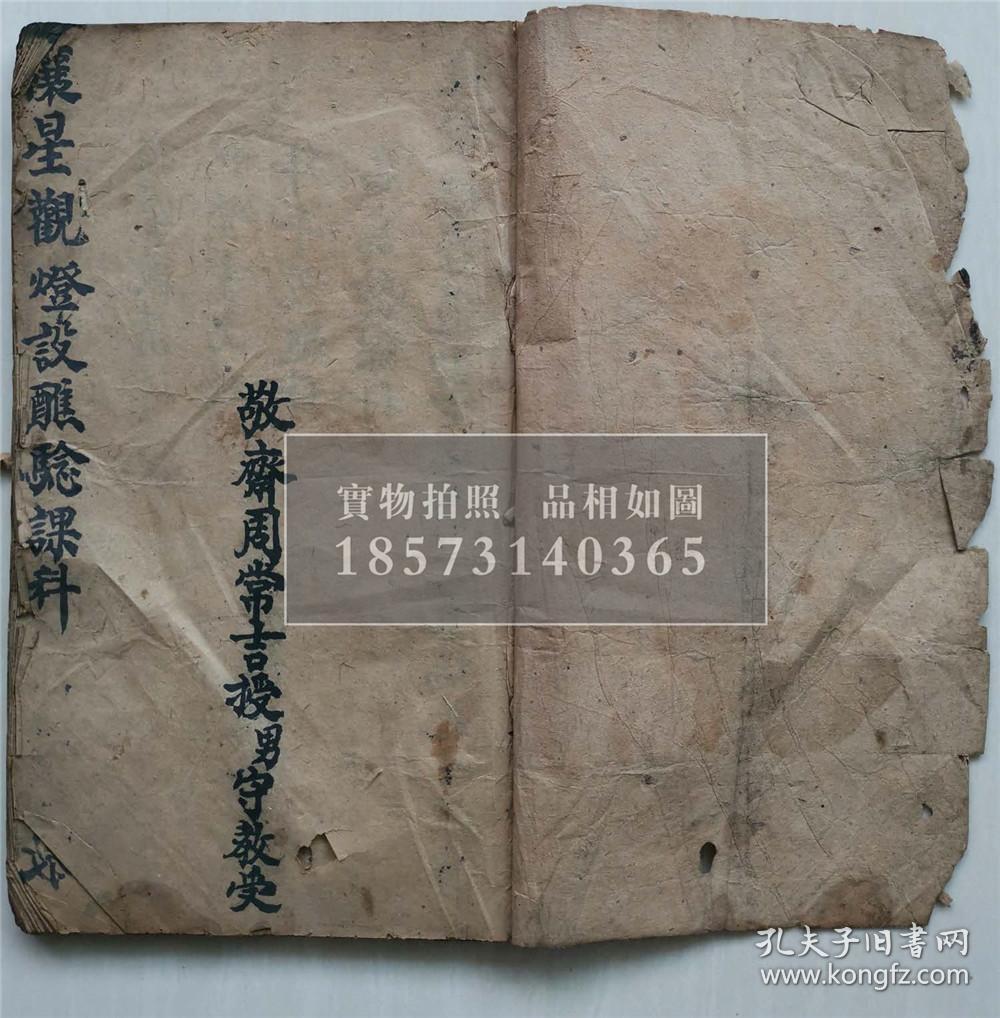 星觀燈設醮騐課科
敬齋周常吉授男守教受
實物拍照 品相如圖
18573140365
孔夫子旧書网
www.kongfz.com